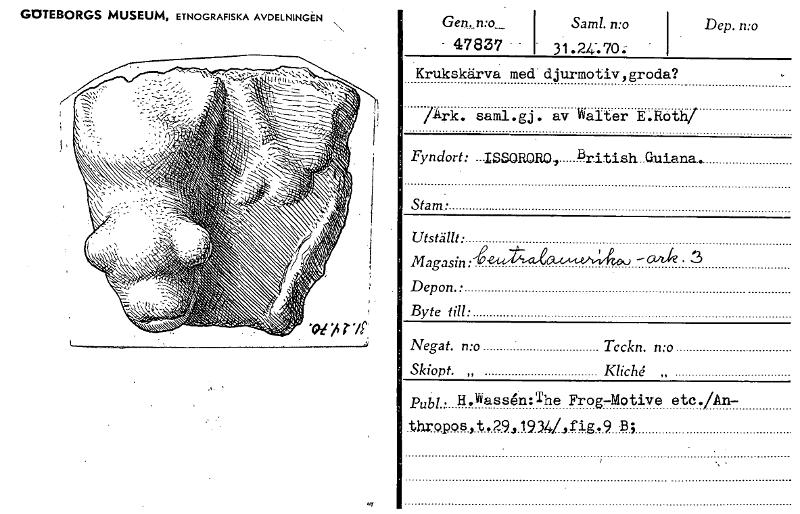 GÖTEBORGS MUSEUM, ETNOGRAFISKA AVDELNINGEN
31.24.70.
Gen. n:o Saml. n:o Dep. n:o
47837 31.24.70.
Krukskärva med djurmotiv,groda?
/Ark. saml.gj. av Walter E.Roth/
Fyndort: ISSORORO, British Guiana.
Stam:
Utställt:
Magasin: Centralamerika - ark. 3
Depon.:
Byte till:
Negat. n:o Teckn. n:o
Skiopt. „ Kliché „
Publ.: H.Wassén:The Frog-Motive etc./An-
thropos,t.29,1934/,fig.9 B;